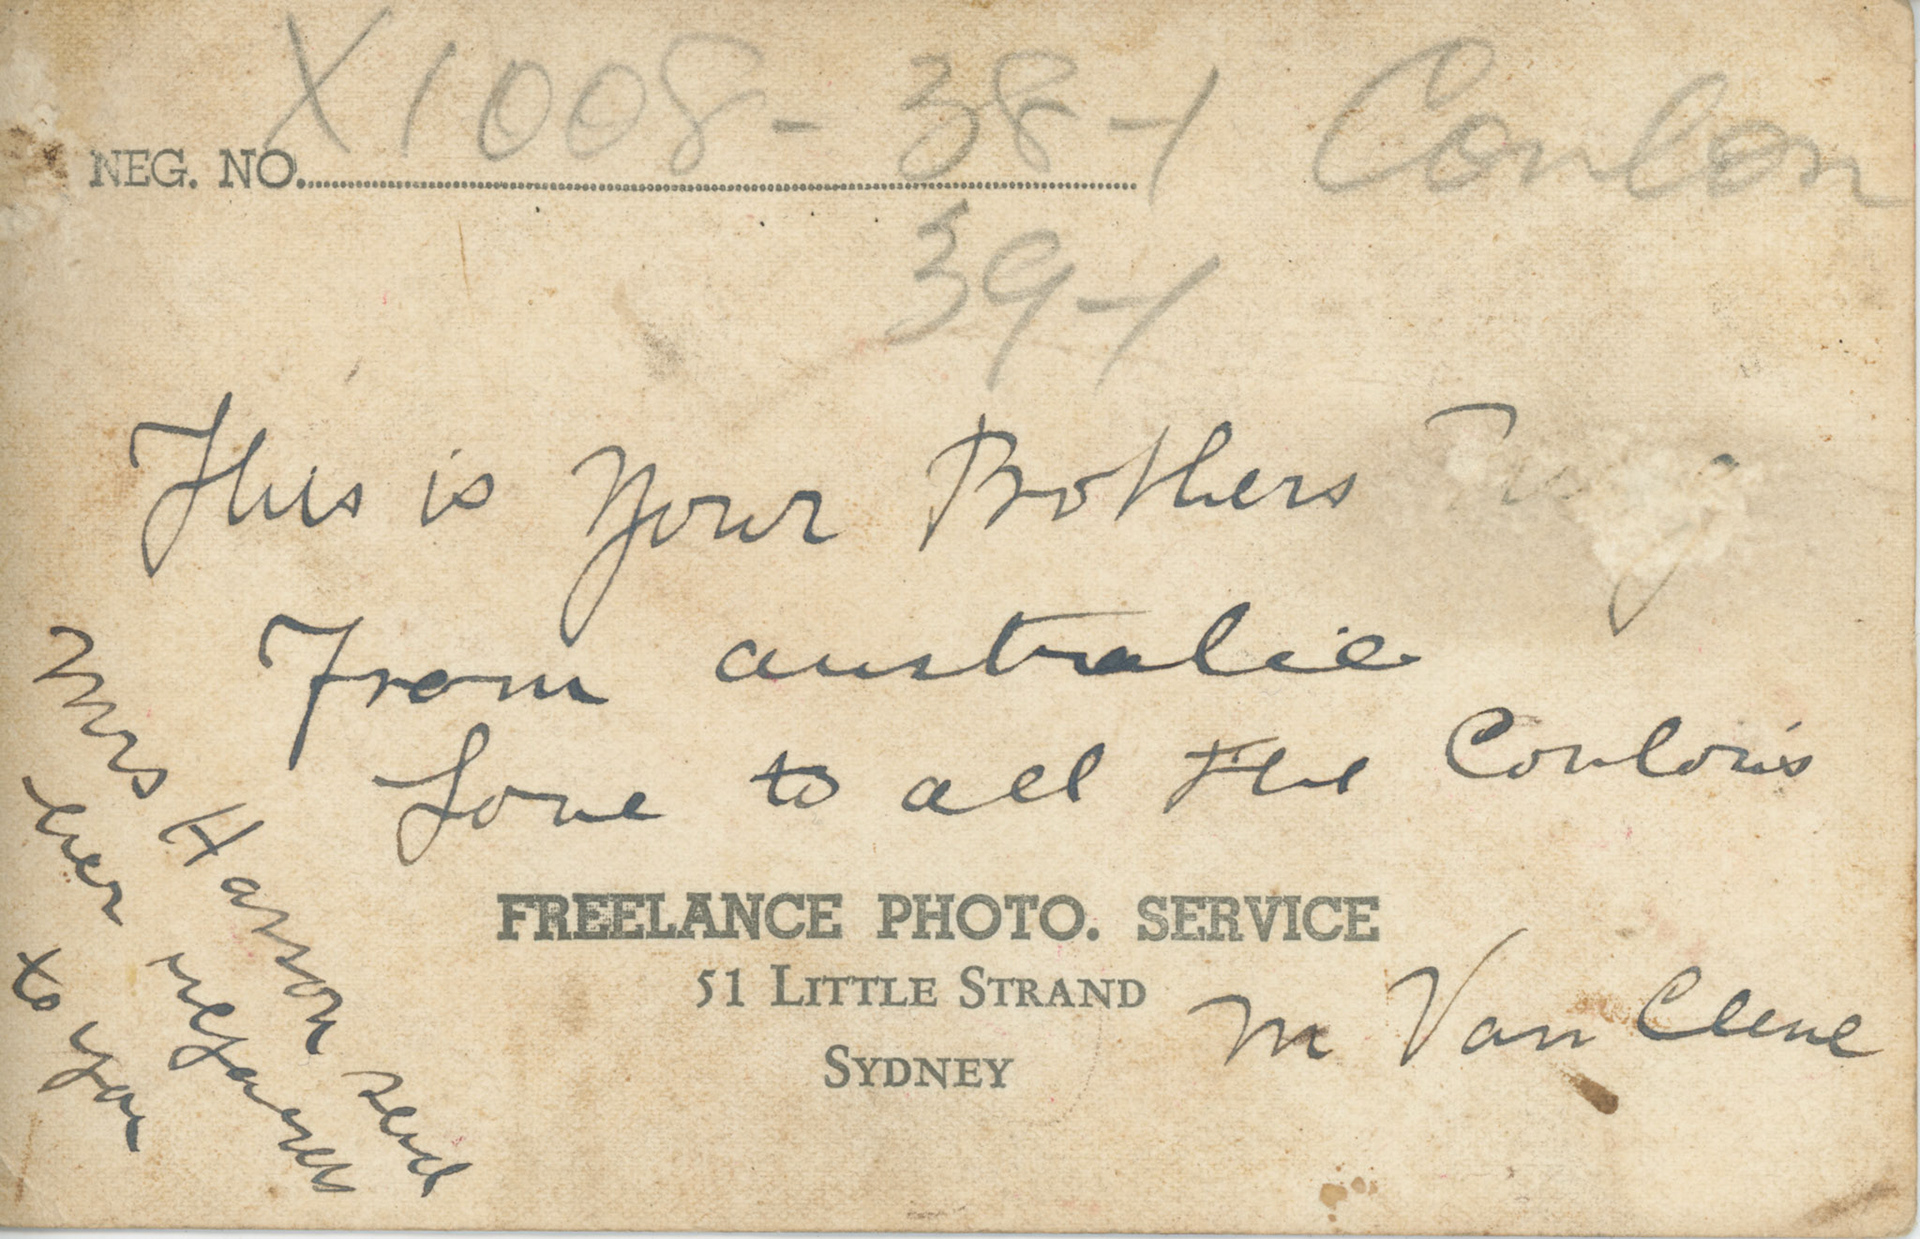 X1008-38-1 Conlon
NEG. NO.
39-1
This is your Brothers
From australie
Love to all the Conlon's
Mrs Harron send
her regards
to you
FREELANCE PHOTO. SERVICE
51 LITTLE STRAND
SYDNEY
M Van Cleve